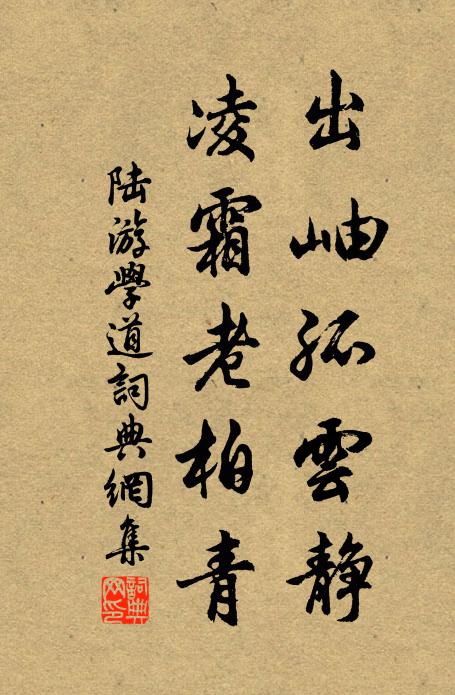 出岫孤雲静
凌霜老柏青
陆游學道詞典網集
詞典网印